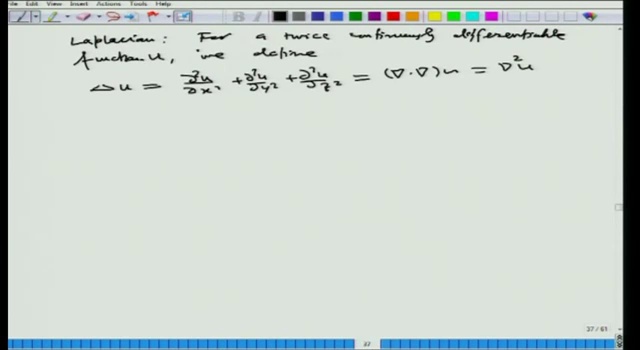 File Edit View Insert Actions Tools Help
Laplacian: For a twice continuously differentiable
function u, we define
Δu = ∂²u/∂x² + ∂²u/∂y² + ∂²u/∂z² = (∇·∇)u = ∇²u
37 / 61
37